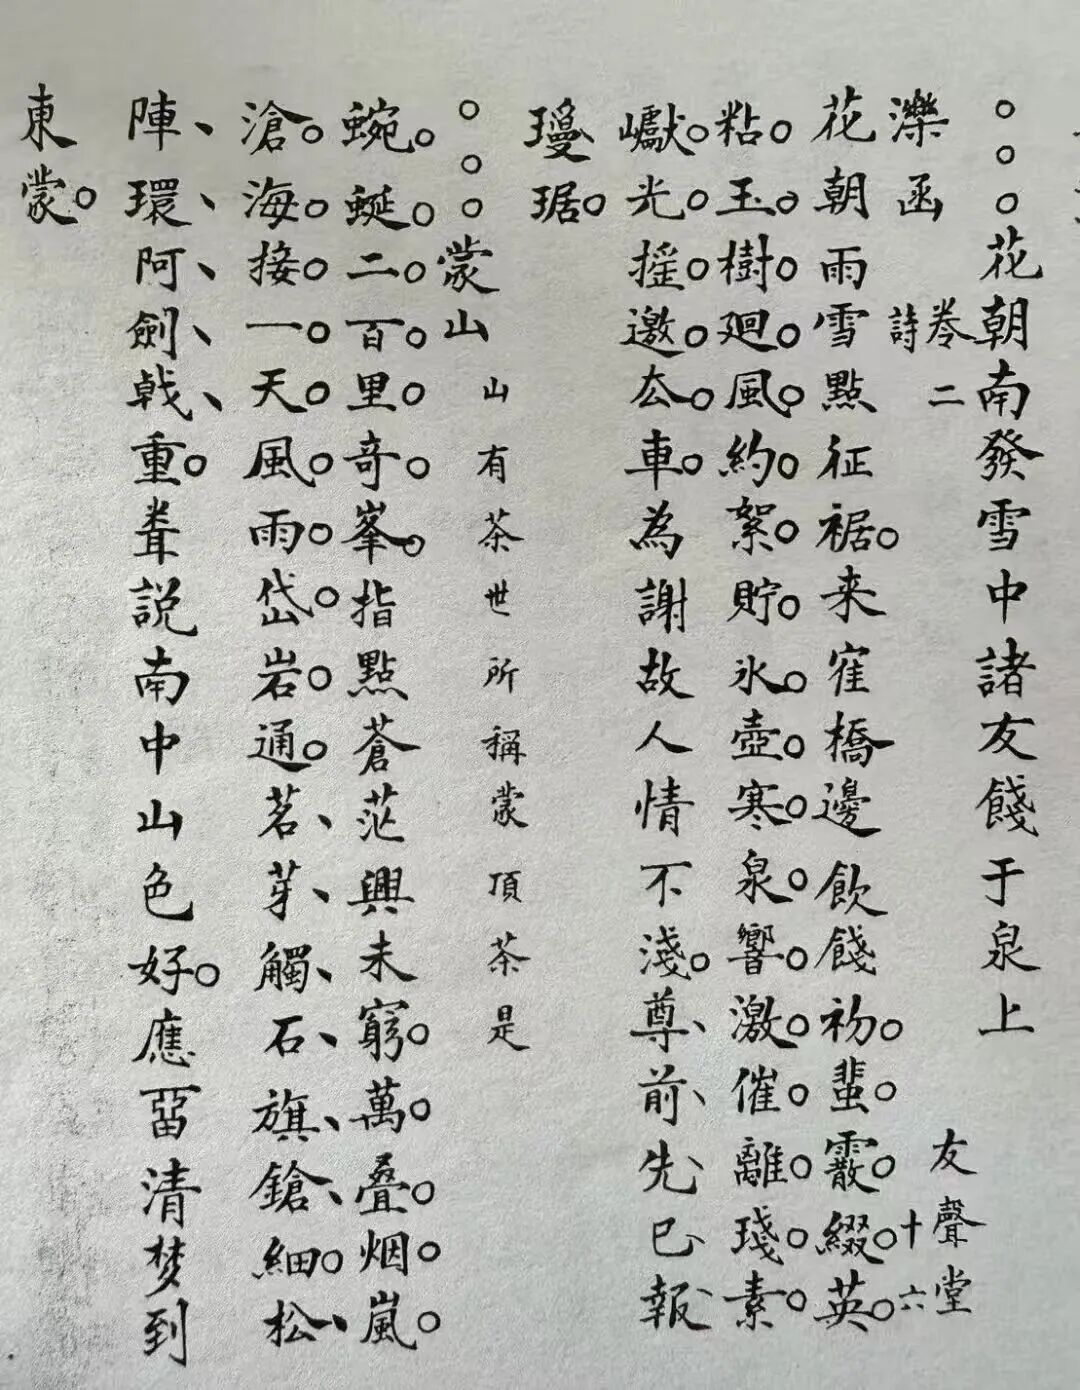 花朝南發雪中諸友餞于泉上
濼函 卷二 詩 友聲堂 十六
花朝雨雪點征裾来隺橋邊飲餞初蜚霰綴英
粘玉樹廻風約絮貯氷壺寒泉響激催離琖素
巘光摇邀厺車為謝故人情不淺尊前先巳報
瓊琚
蒙山 山有茶世所稱蒙頂茶是
蜿蜒二百里竒峯指點蒼茫興未窮萬叠烟嵐
滄海接一天風雨岱岩通茗芽觸石旗鎗細松
陣環阿劍戟重說南中山色好應畱清梦到
東蒙